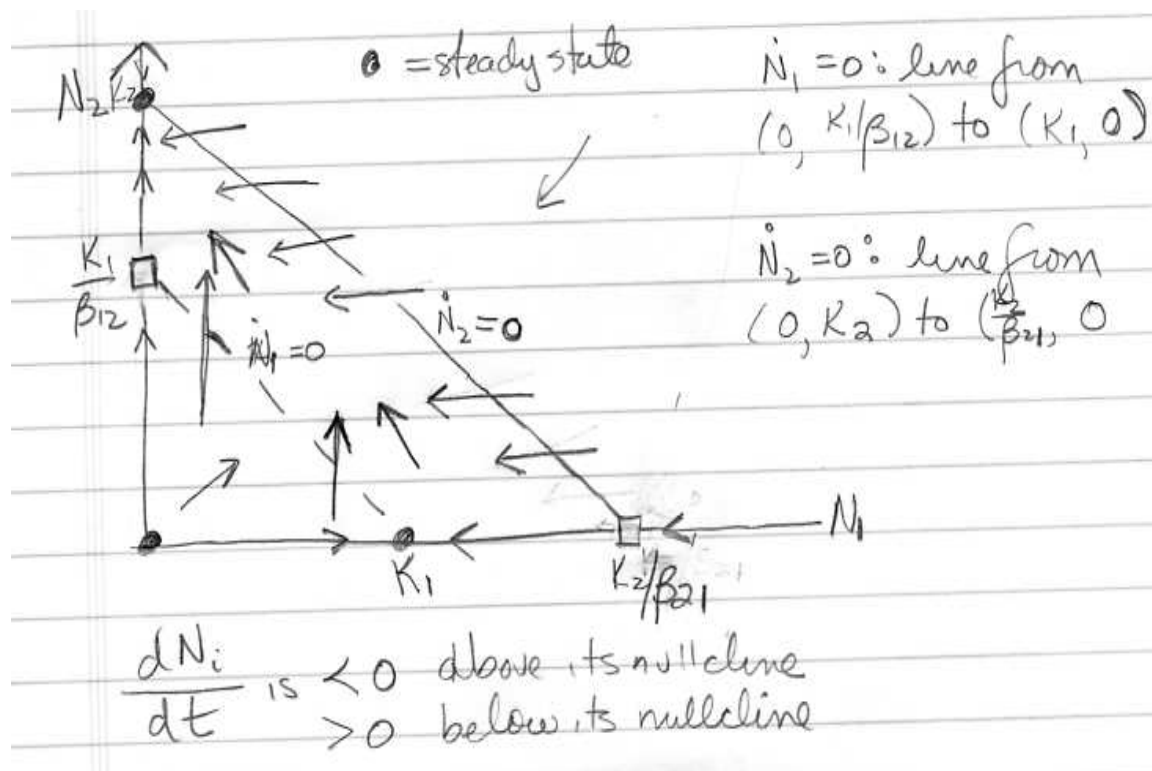 ● = steady state
Ṅ₁ = 0 : line from
(0, K₁/β₁₂) to (K₁, 0)
N₂ K₂
Ṅ₂ = 0 : line from
(0, K₂) to (K₂/β₂₁, 0
K₁/β₁₂
Ṅ₂ = 0
Ṅ₁ = 0
N₁
K₁
K₂/β₂₁
dNᵢ/dt is < 0 above its nullcline
> 0 below its nullcline